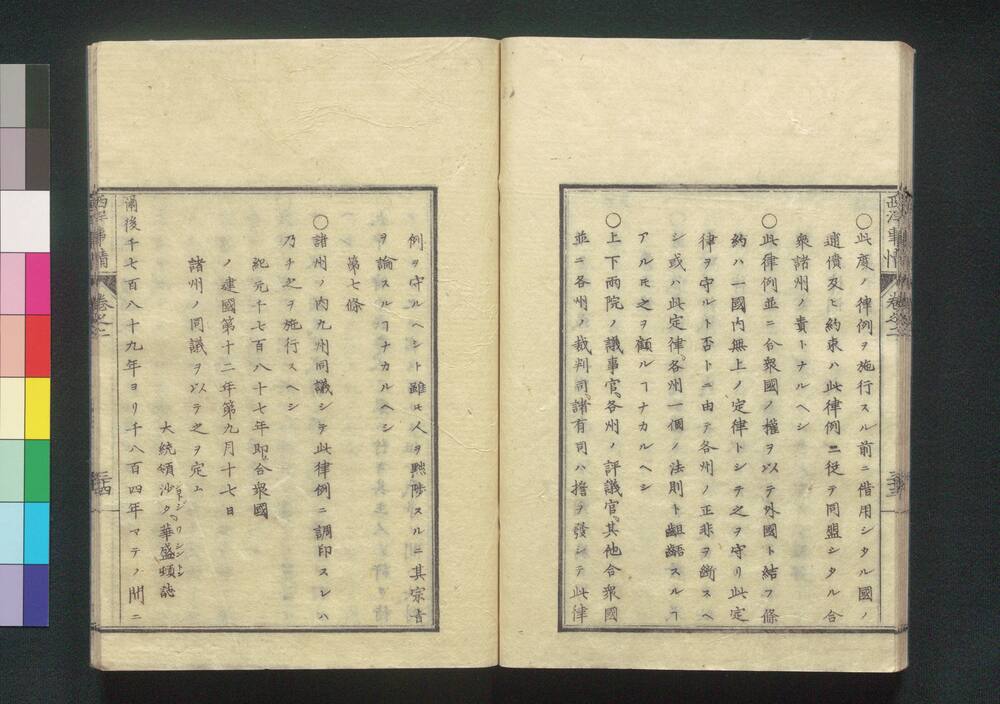 西洋事情 巻之二 三十三
○此度ノ律例ヲ施行スル前ニ借用シタル國ノ
逋債及ヒ約束ハ此律例ニ従テ同盟シタル合
衆諸州ノ責トナルヘシ
○此律例並ニ合衆國ノ權ヲ以テ外國ト結フ條
約ハ一國内無上ノ定律トシテ之ヲ守リ此定
律ヲ守ルト否トニ由テ各州ノ正非ヲ斷スヘ
シ或ハ此定律各州一個ノ法則ト齟齬スルヿ
アルモ之ヲ顧ルヿナカルヘシ
○上下兩院ノ議事官各州ノ評議官其他合衆國
並ニ各州ノ裁判司諸有司ハ擔ヲ發シテ此律
例ヲ守ルヘシト雖モ人ヲ黜陟スルニ其宗旨
ヲ論スルヿナカルヘシ
第七條
○諸州ノ内九州同議シテ此律例ニ調印スレハ
乃チ之ヲ施行スヘシ
紀元千七百八十七年即合衆國
ノ建國第十二年第九月十七日
諸州ノ同議ヲ以テ之ヲ定ム
大統領沙タ華盛頓誌
爾後千七百八十九年ヨリ千八百四年マテノ間ニ
西洋事情 巻之二 三十四